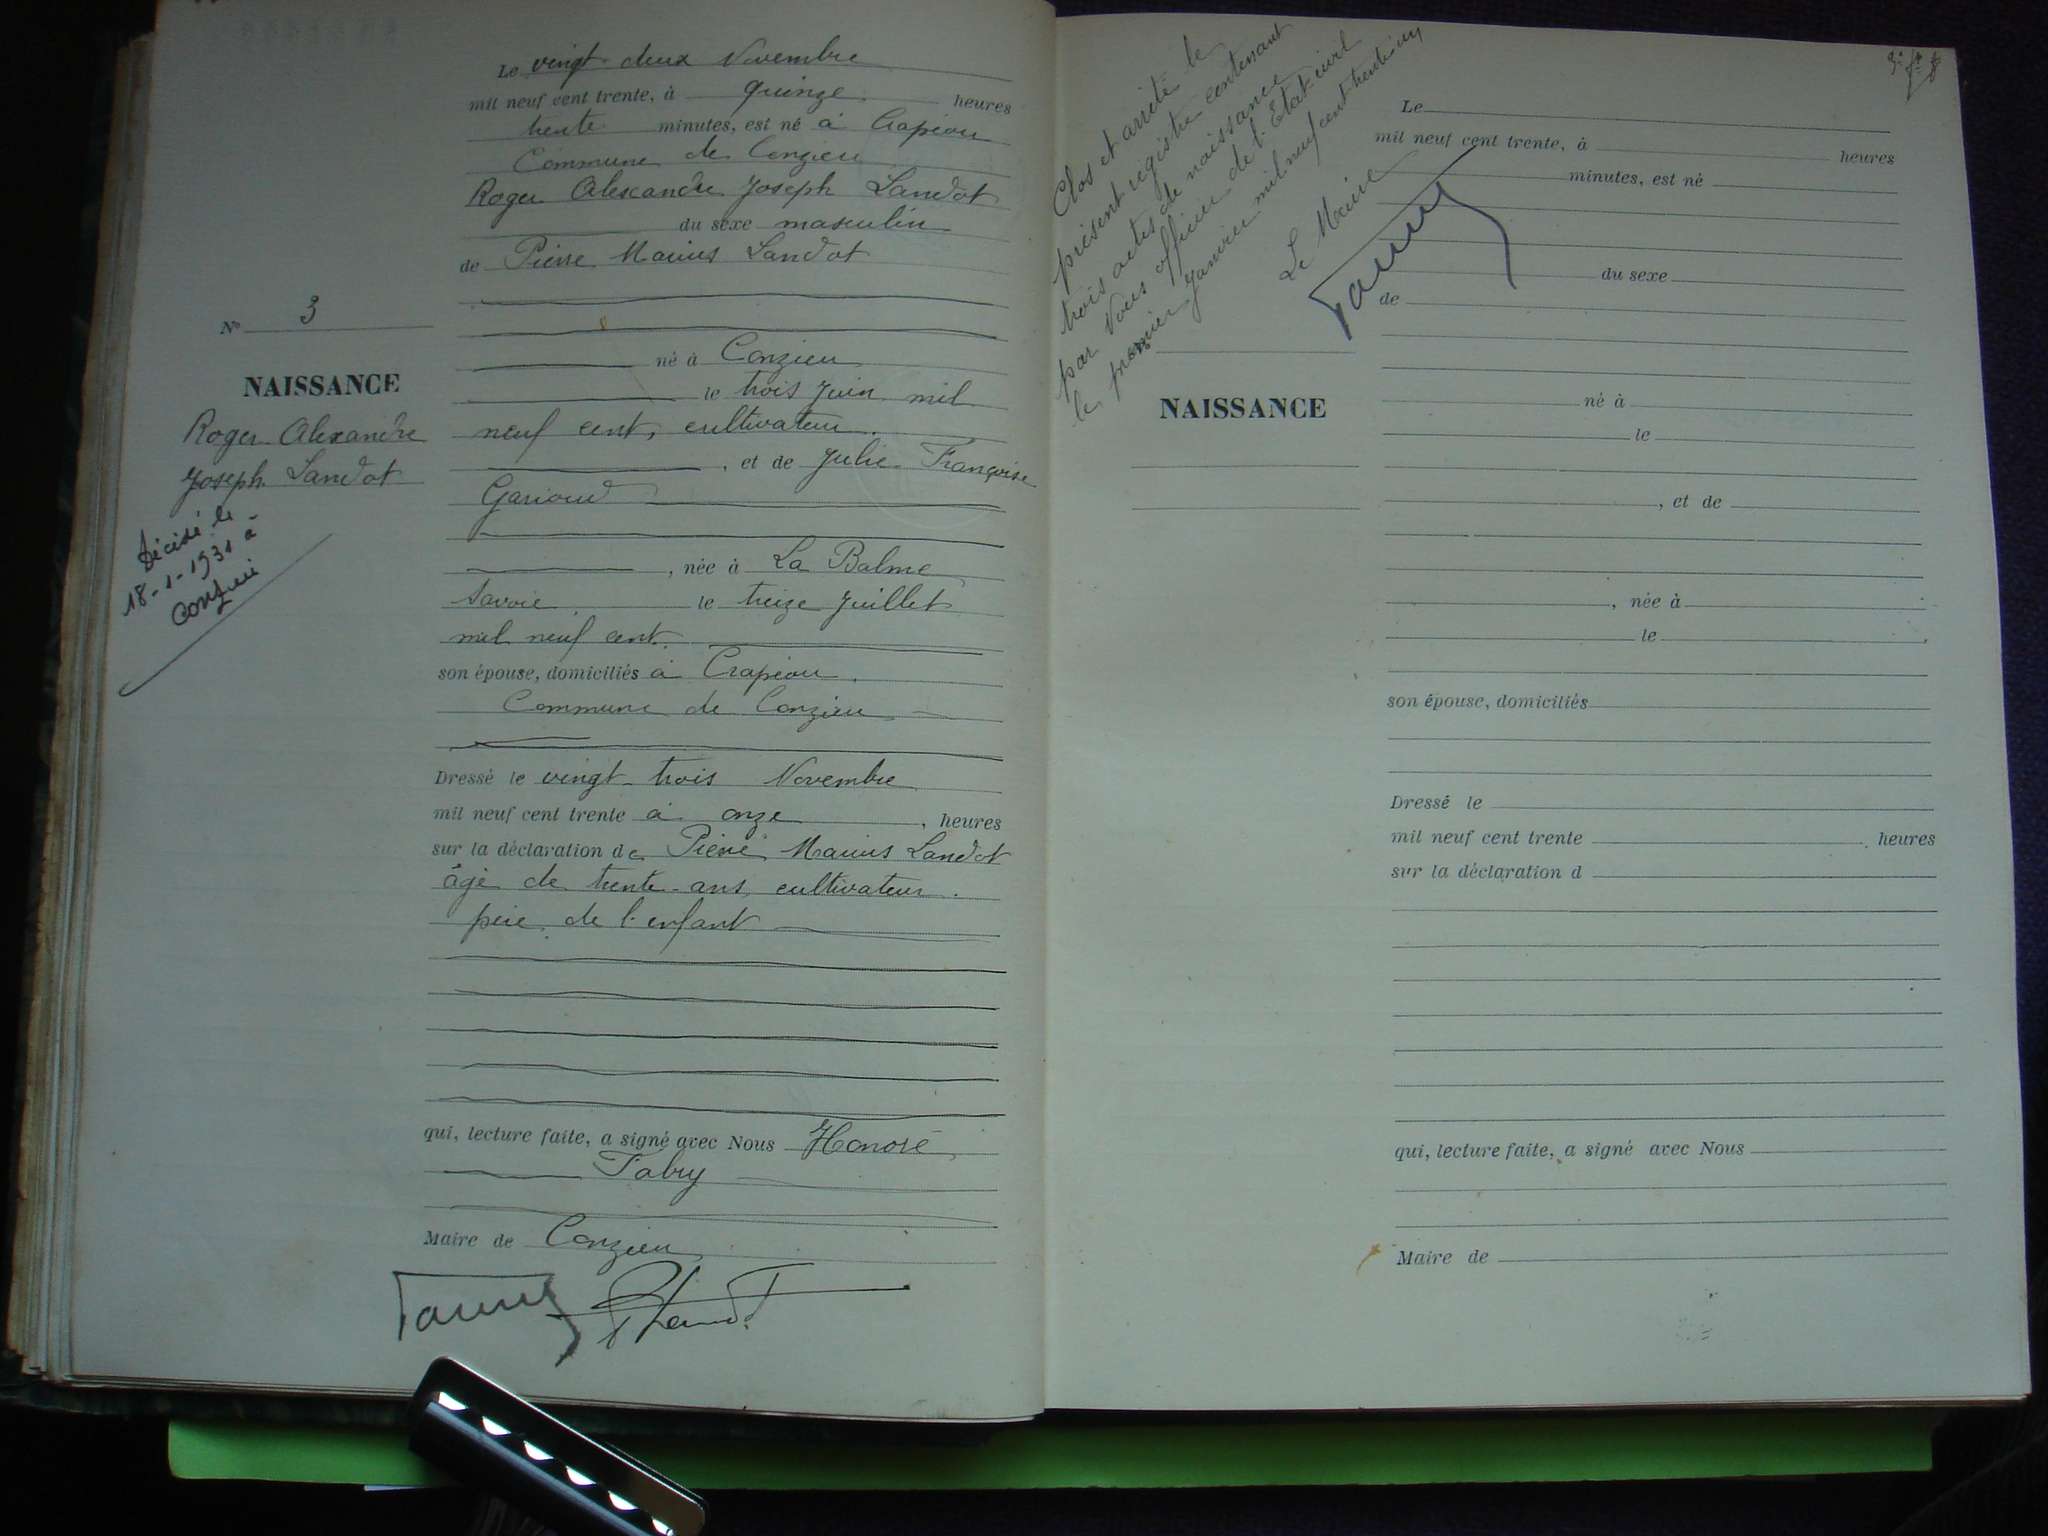 Le vingt deux Novembre
mil neuf cent trente, à quinze heures
trente minutes, est né à Crapéou
Commune de Conzieu
Roger Alexandre Joseph Landot
du sexe masculin
de Pierre Marius Landot
né à Conzieu
le trois Juin mil
neuf cent, cultivateur.
, et de Julie Françoise
Garioud
, née à La Balme
Savoie le treize Juillet
mil neuf cent.
son épouse, domiciliés à Crapéou
Commune de Conzieu
Dressé le vingt trois Novembre
mil neuf cent trente à onze, heures
sur la déclaration de Pierre Marius Landot
âgé de trente ans, cultivateur.
père de l'enfant
qui, lecture faite, a signé avec Nous Honoré
Fabry
Maire de Conzieu
Landot
No 3
NAISSANCE
Roger Alexandre
Joseph Landot
Décédé le
18-1-1931 à
Conzieu
Clos et arrêté le
présent registre contenant
trois actes de naissance
par Nous officier de l'Etat civil
le premier Janvier mil neuf cent trente un
Le Maire
NAISSANCE
Le
mil neuf cent trente, à heures
minutes, est né
du sexe
de
né à
le
, et de
, née à
le
son épouse, domiciliés
Dressé le
mil neuf cent trente heures
sur la déclaration d
qui, lecture faite, a signé avec Nous
Maire de